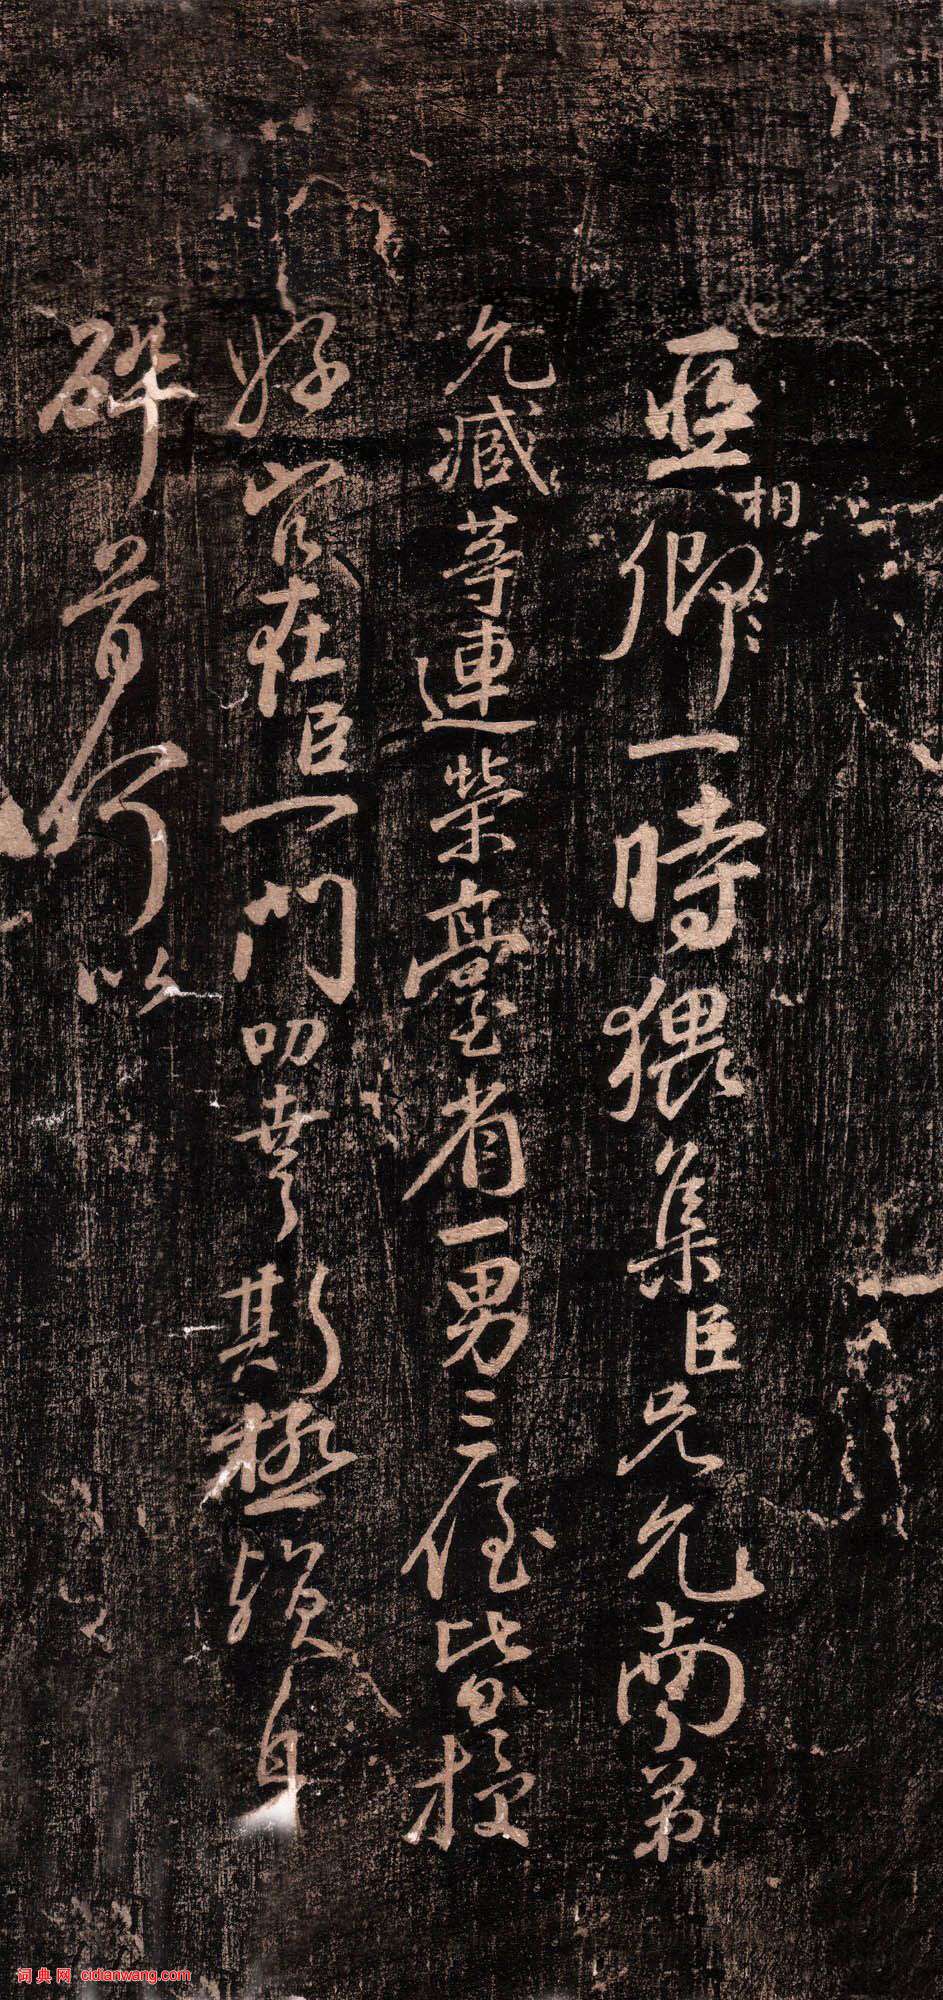 亞相卿一時猥集臣兄允南弟
允臧等連榮臺省一男三侄皆授
好官在臣一門叨幸斯極殞身
碎首何以
词典网 cidianwang.com